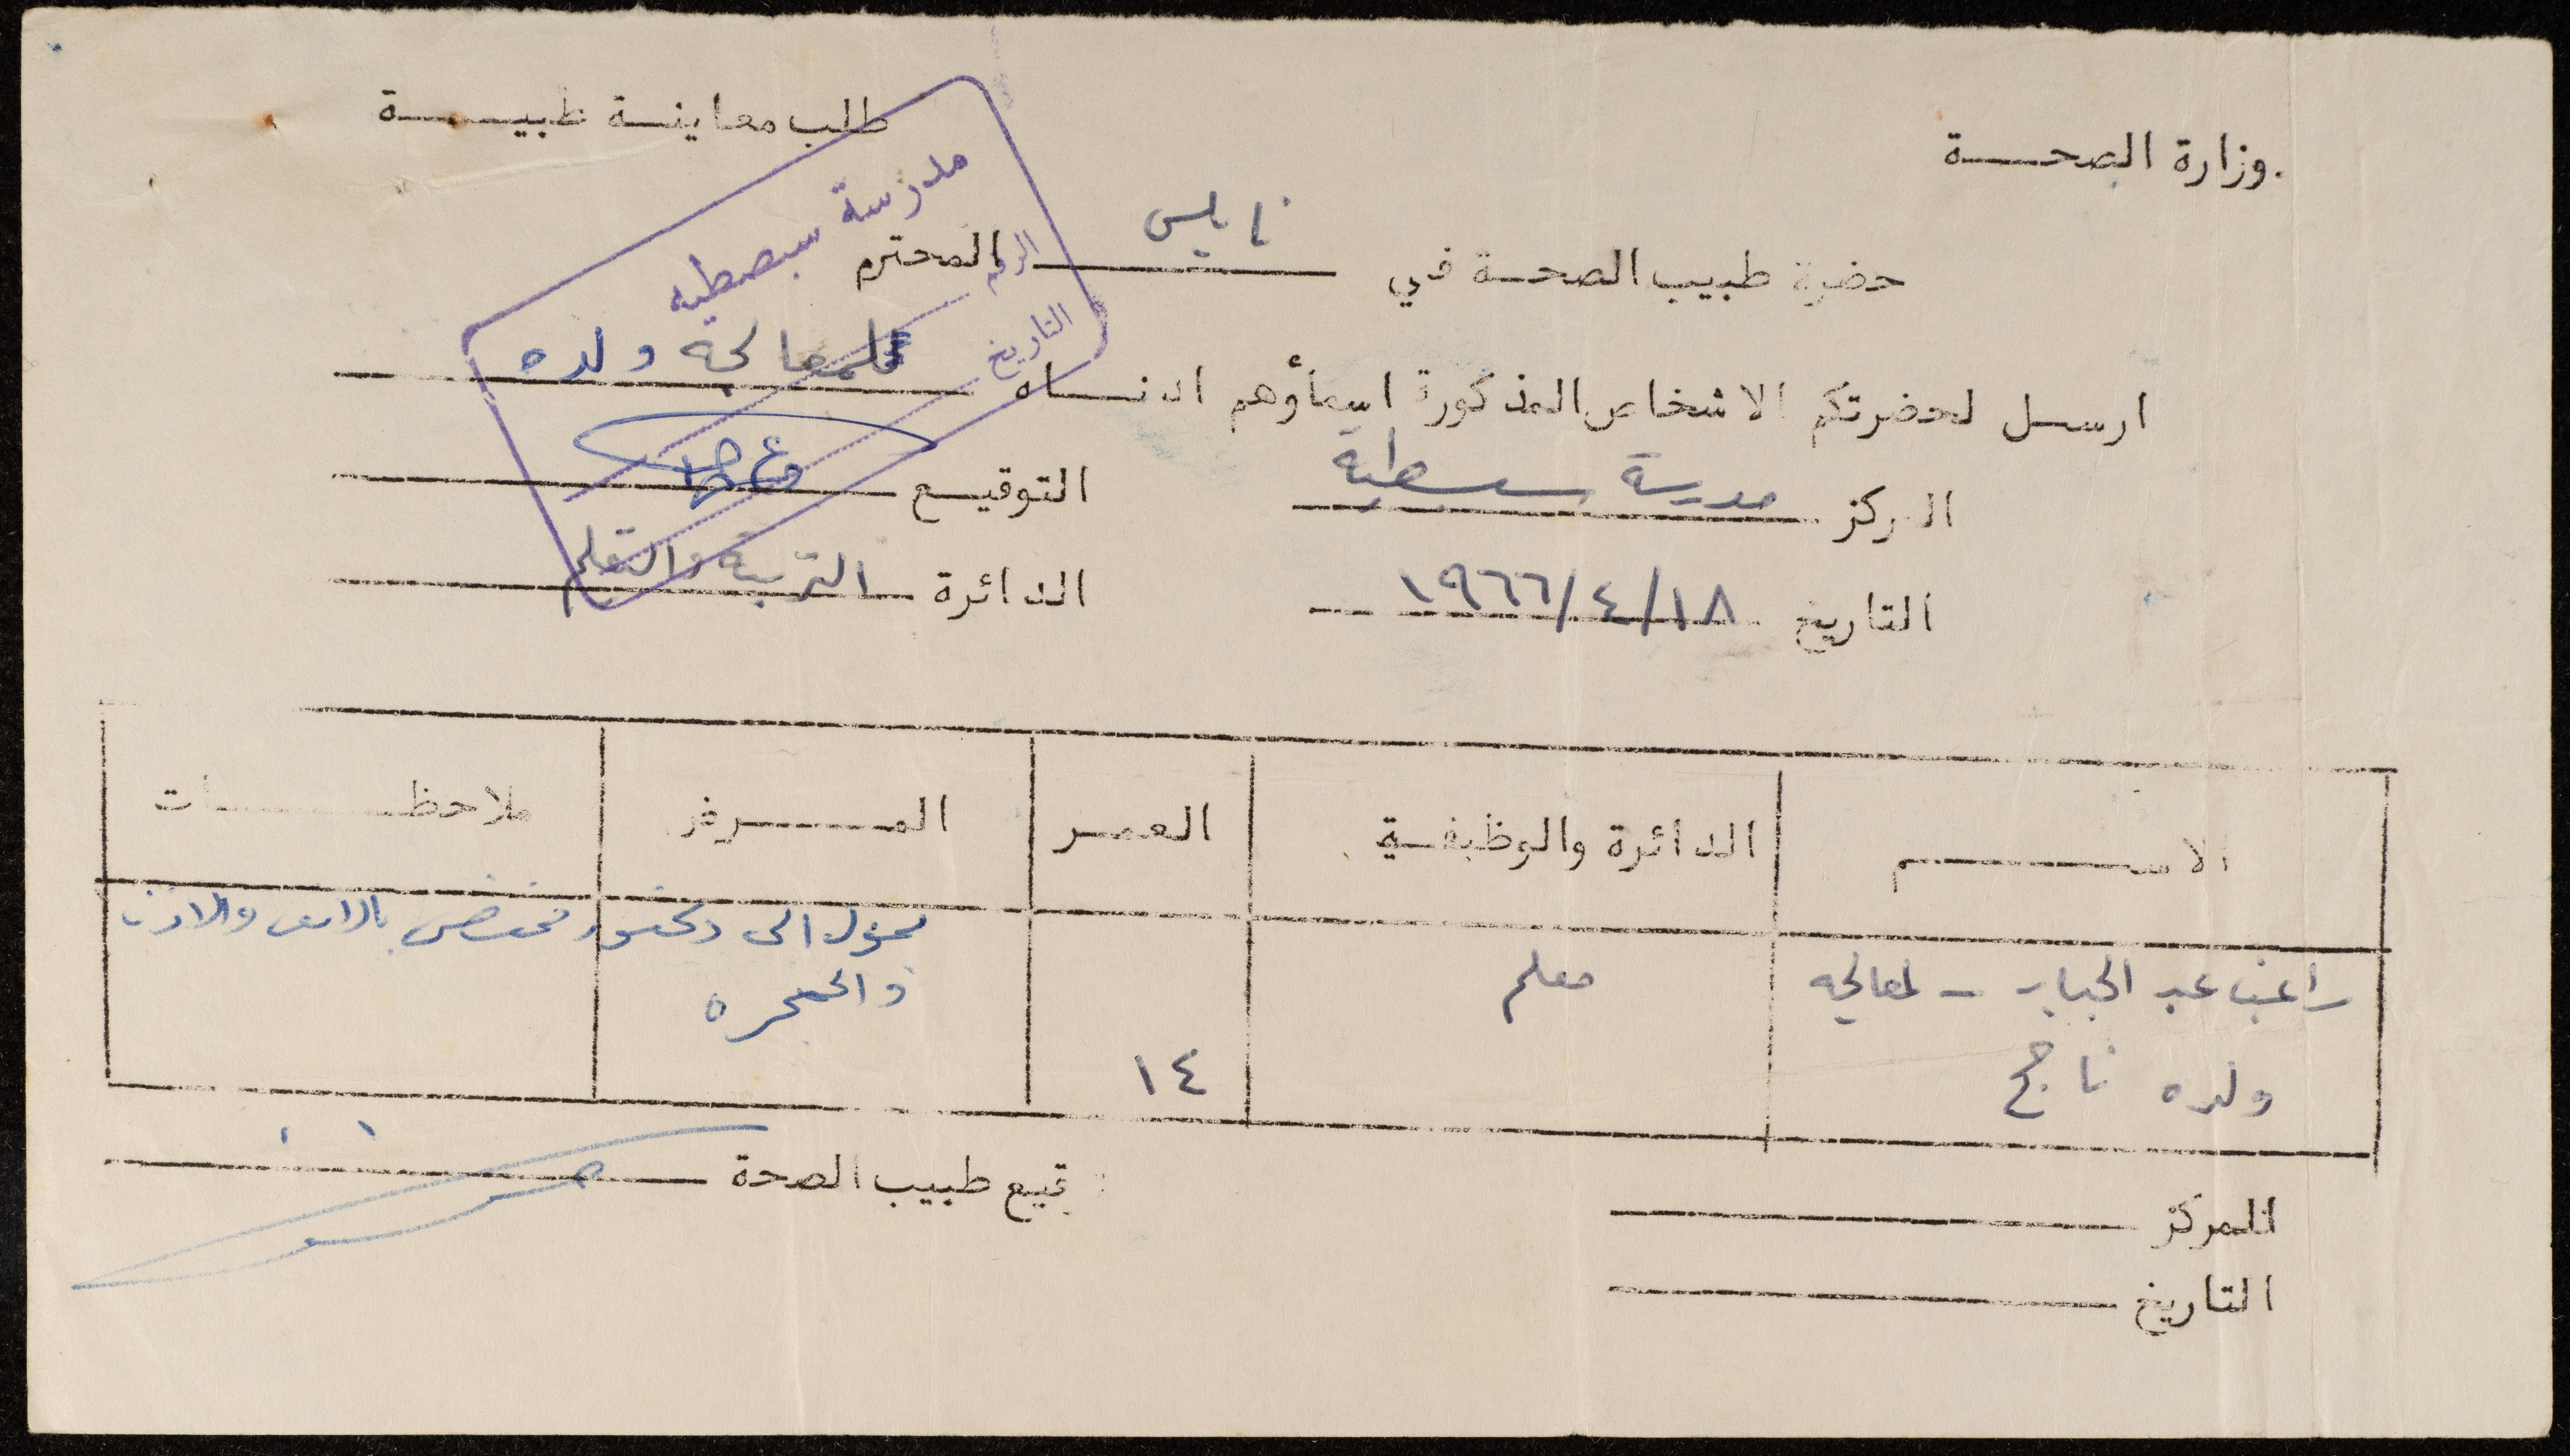 وزارة الصحة
طلب معاينة طبية
حضرة طبيب الصحة في نابلس المحترم
ارسل لحضرتكم الاشخاص المذكورة اسماؤهم ادناه للمعالجة ولده
المركز مدرسة سبسطية
التوقيع
التاريخ ١٨/٤/١٩٦٦
الدائرة التربية والتعليم
مدرسة سبصطيه
الرقم
التاريخ
الاسم الدائرة والوظيفية العمر المرض ملاحظات
راغب عبد الجبار - لمعالجه معلم
ولده ناجح ١٤
محول الى دكتور مختص بالانف والاذن
والحنجره
المركز
توقيع طبيب الصحة
التاريخ